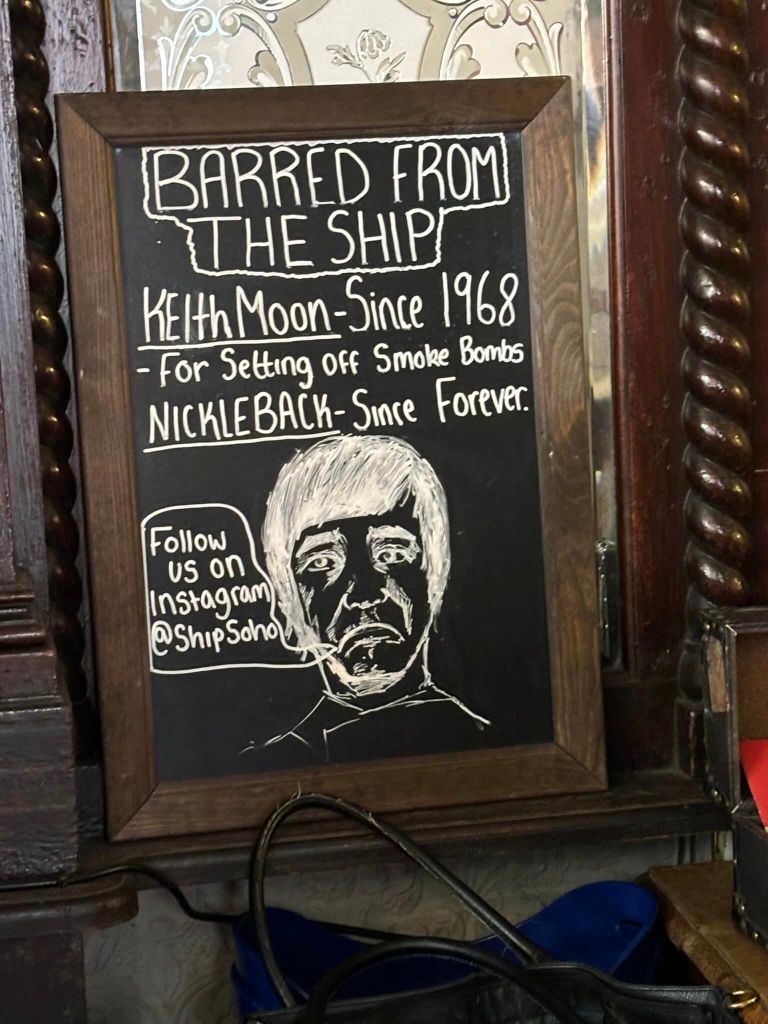 BARRED FROM
THE SHIP
KEIth Moon-Since 1968
- For Setting off Smoke Bombs
NICKLEBACK-Since Forever.
Follow
us on
Instagram
@ShipSoho